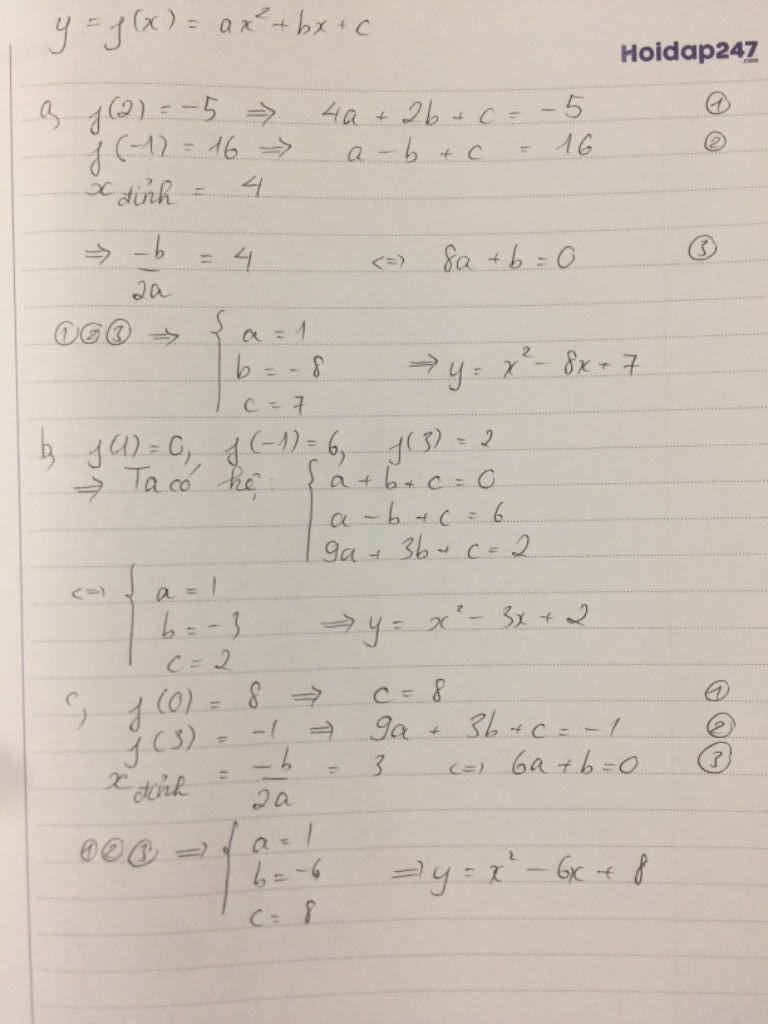 y = f(x) = ax² + bx + c
Hoidap247.com
a, f(2) = -5 ⇒ 4a + 2b + c = -5 ①
f(-1) = 16 ⇒ a - b + c = 16 ②
x đỉnh = 4
⇒ -b/2a = 4 <=> 8a + b = 0 ③
①②③ ⇒ { a = 1
b = -8 ⇒ y = x² - 8x + 7
c = 7
b, f(1) = 0, f(-1) = 6, f(3) = 2
⇒ Ta có hệ: { a + b + c = 0
a - b + c = 6
9a + 3b + c = 2
<=> { a = 1
b = -3 ⇒ y = x² - 3x + 2
c = 2
c, f(0) = 8 ⇒ c = 8 ①
f(3) = -1 ⇒ 9a + 3b + c = -1 ②
x đỉnh = -b/2a = 3 <=> 6a + b = 0 ③
①②③ ⇒ { a = 1
b = -6 ⇒ y = x² - 6x + 8
c = 8